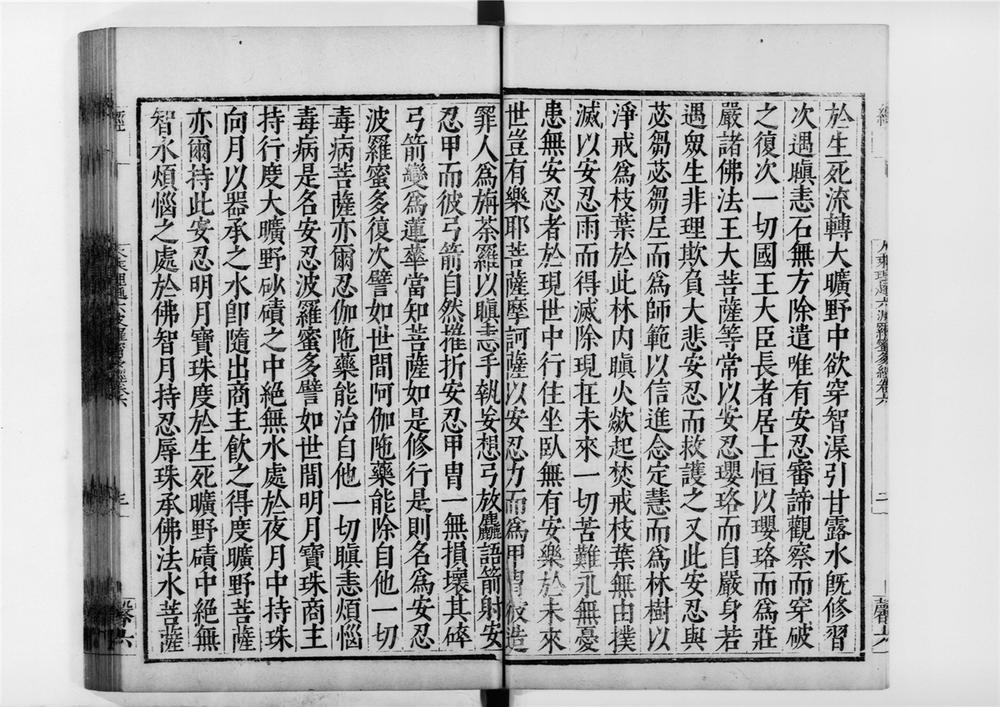 於生死流轉大曠野中欲穿智渠引甘露水旣修習
次遇瞋恚石無方除遣唯有安忍審諦觀察而穿破
之復次一切國王大臣長者居士恒以瓔珞而爲莊
嚴諸佛法王大菩薩等常以安忍瓔珞而自嚴身若
遇衆生非理欺負大悲安忍而救護之又此安忍與
苾芻苾芻尼而爲師範以信進念定慧而爲林樹以
淨戒爲枝葉於此林內瞋火歘起焚戒枝葉無由撲
滅以安忍雨而得滅除現在未來一切苦難永無憂
患無安忍者於現世中行住坐臥無有安樂於未來
世豈有樂耶菩薩摩訶薩以安忍力而爲甲冑彼造
罪人爲旃荼羅以瞋恚手執妄想弓放麤語箭射安
忍甲而彼弓箭自然摧折安忍甲冑一無損壞其碎
弓箭變爲蓮華當知菩薩如是修行是則名爲安忍
波羅蜜多復次譬如世間阿伽陁藥能除自他一切
毒病菩薩亦爾忍伽陁藥能治自他一切瞋恚煩惱
毒病是名安忍波羅蜜多譬如世間明月寶珠商主
持行度大曠野砂磧之中絕無水處於夜月中持珠
向月以器承之水卽隨出商主飲之得度曠野菩薩
亦爾持此安忍明月寶珠度於生死曠野磧中絕無
智水煩惱之處於佛智月持忍辱珠承佛法水菩薩